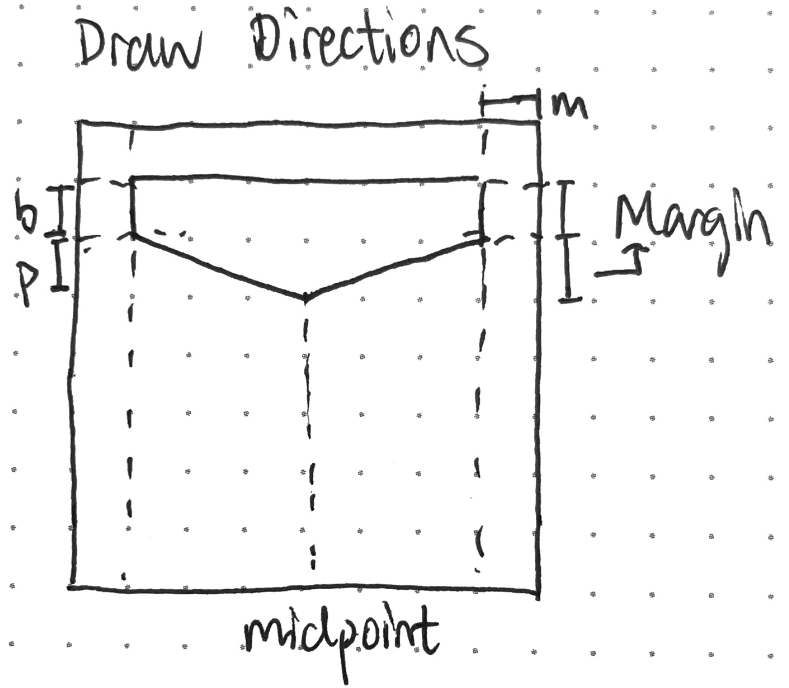 Draw Directions
m
b
Margin
p
midpoint